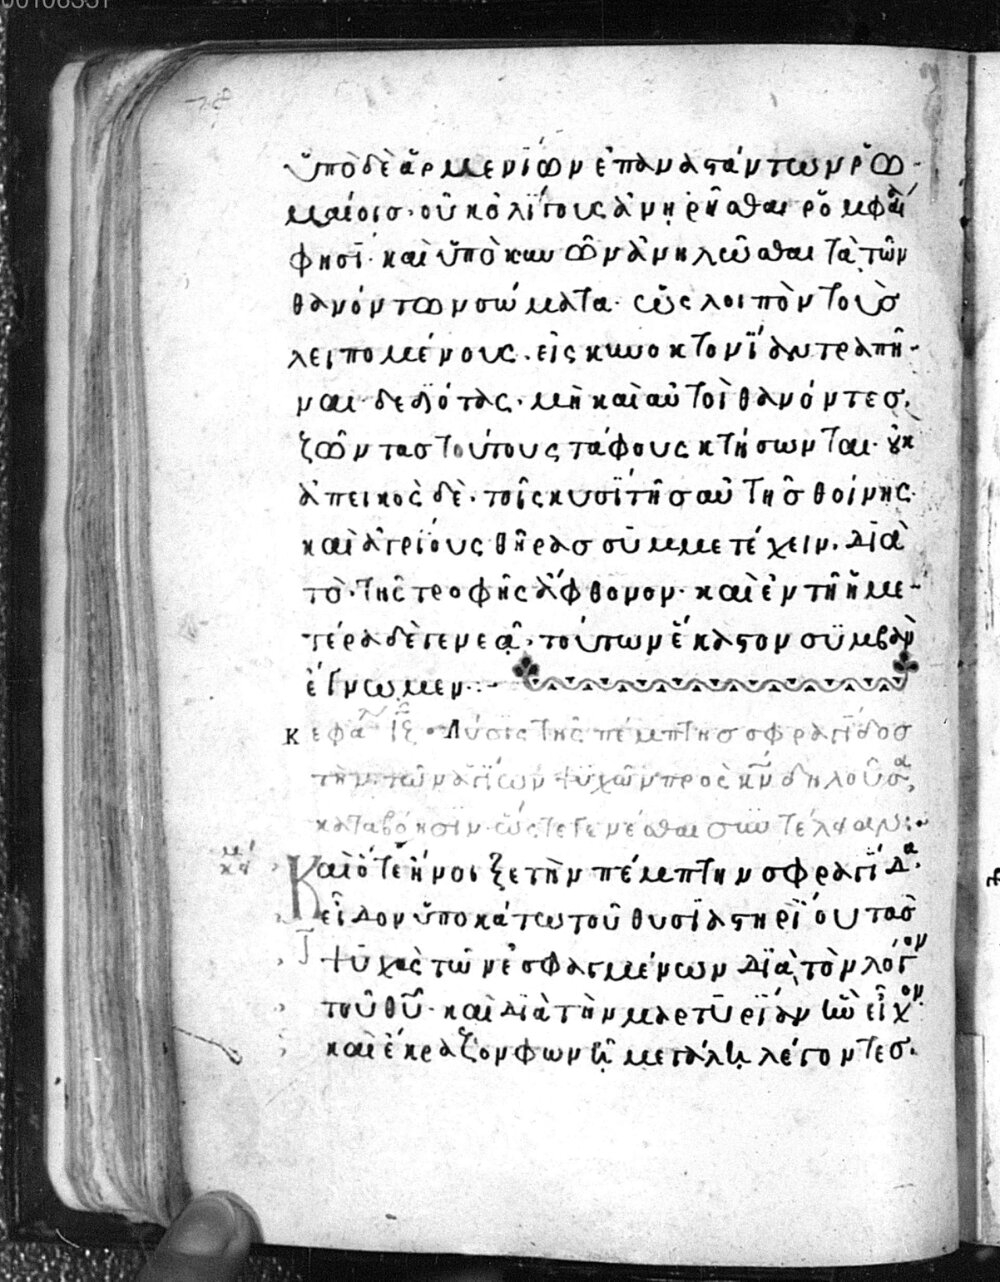 ὑπὸ δὲ ἀρμενίων ἐπαναστάντων ῥω
μαίοις· οὐκ ὀλίγους ἀνῃρῆσθαι ῥομφαί
φησί· καὶ ὑπὸ κυνῶν ἀνηλῶσθαι τὰ τῶν
θανόντων σώματα· ὡς λοιπὸν τοὺσ
λειπομένους· εἰς κυνοκτονίαν τραπῆ-
ναι· δεδιότας· μὴ καὶ αὐτοὶ θανόντεσ·
ζῶντασ τούτους τάφους κτήσωνται· οὐκ
ἀπεικὸς δὲ· τοῖς κυσὶ τῆσ αὐτῆσ θοίνης·
καὶ ἀγρίους θῆρασ συμμετέχειν· διὰ
τὸ· τῆς τροφῆς ἄφθονον· καὶ ἐν τῇ ἡμε-
τέρα δὲ γενεᾷ· τούτων ἕκαστον συμβὰν
ἔγνωμεν·:-
κεφα ιϛ· Λύσις τῆς πέμπτησ σφραγίδοσ
τὴν τῶν ἁγίων ψυχῶν πρὸς κν δηλοῦσα,
καταβόησιν· ὥστε γενέσθαι συντέλειαν:·
Καὶ ὅτε ἤνοιξε τὴν πέμπτην σφραγίδα·
εἶδον ὑποκάτω τοῦ θυσιαστηρίου τασ
ψυχὰς τῶν ἐσφαγμένων διὰ τὸν λόγον
τοῦ θυ· καὶ διὰ τὴν μαρτυρίαν ἣν εἶχον·
καὶ ἔκραζον φωνῇ μεγάλῃ λέγοντεσ·